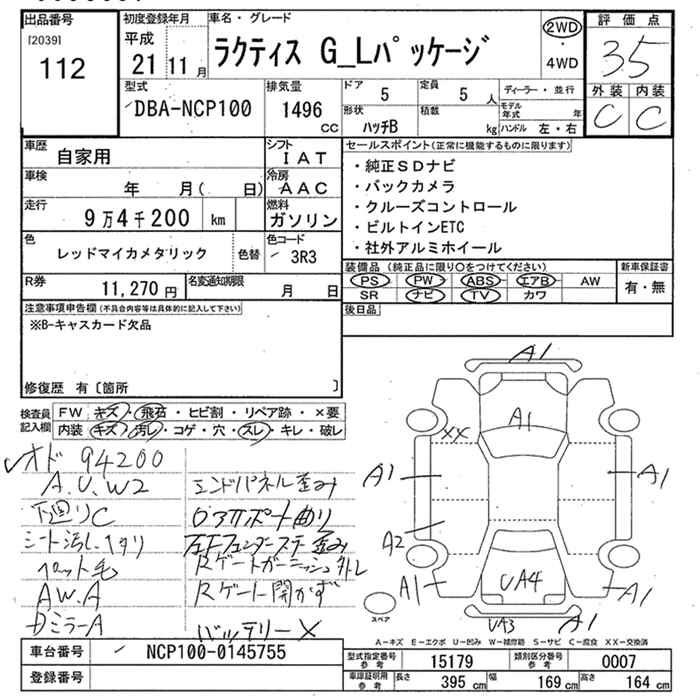 出品番号
[2039]
112
初度登録年月
平成
21 11 月
車名・グレード
ラクティス G_Lパッケージ
2WD
・
4WD
評価点
35
型式
DBA-NCP100
排気量
1496
CC
ドア
5
定員
5 人
ディーラー・並行
モデル年式 年
形状
ハッチB
積載
kg
ハンドル 左・右
外装 内装
C C
車歴
自家用
シフト
IAT
車検
年 月( 日)
冷房
AAC
走行
9万4千200 km
燃料
ガソリン
色
レッドマイカメタリック
色替
色コード
3R3
R券
11,270 円
名変通知期限
月 日
セールスポイント(正常に機能するものに限ります)
・純正SDナビ
・バックカメラ
・クルーズコントロール
・ビルトインETC
・社外アルミホイール
装備品 (純正品に限り○をつけてください)
PS PW ABS エアB AW
SR ナビ TV カワ
新車保証書
有・無
後日品
注意事項申告欄(不具合内容等は具体的に記入して下さい)
※B-キャスカード欠品
修復歴 有〔箇所 〕
検査員
記入欄
FW キズ・飛石・ヒビ割・リペア跡・×要
内装 キズ・汚レ・コゲ・穴・スレ・キレ・破レ
オド 94200
A.U.W2
下廻りC
シート汚レ、ヘタリ
ペット毛
AW.A
Dミラー A
エンドパネル歪み
ロアサポート曲り
左Fフェンダーステー歪み
Rゲートガーニッシュ外レ
Rゲート開かず
バッテリー×
A1
A1
XX
A1
A1
A2
A1
UA4
A1
UA3
A1
スペア
A-キズ E-エクボ U-凹み W-補修跡 S-サビ C-腐食 XX-交換済
車台番号
NCP100-0145755
登録番号
型式指定番号
参考
15179
類別区分番号
参考
0007
車庫証明用
参考
長さ
395 cm
幅
169 cm
高さ
164 cm